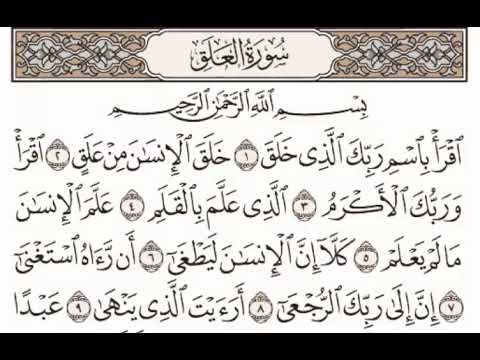 سُورَةُ ٱلْعَلَقِ
بِسْمِ ٱللَّهِ ٱلرَّحْمَٰنِ ٱلرَّحِيمِ
ٱقْرَأْ بِٱسْمِ رَبِّكَ ٱلَّذِى خَلَقَ ١ خَلَقَ ٱلْإِنسَٰنَ مِنْ عَلَقٍ ٢ ٱقْرَأْ
وَرَبُّكَ ٱلْأَكْرَمُ ٣ ٱلَّذِى عَلَّمَ بِٱلْقَلَمِ ٤ عَلَّمَ ٱلْإِنسَٰنَ
مَا لَمْ يَعْلَمْ ٥ كَلَّآ إِنَّ ٱلْإِنسَٰنَ لَيَطْغَىٰٓ ٦ أَن رَّءَاهُ ٱسْتَغْنَىٰٓ
٧ إِنَّ إِلَىٰ رَبِّكَ ٱلرُّجْعَىٰٓ ٨ أَرَءَيْتَ ٱلَّذِى يَنْهَىٰ ٩ عَبْدًا